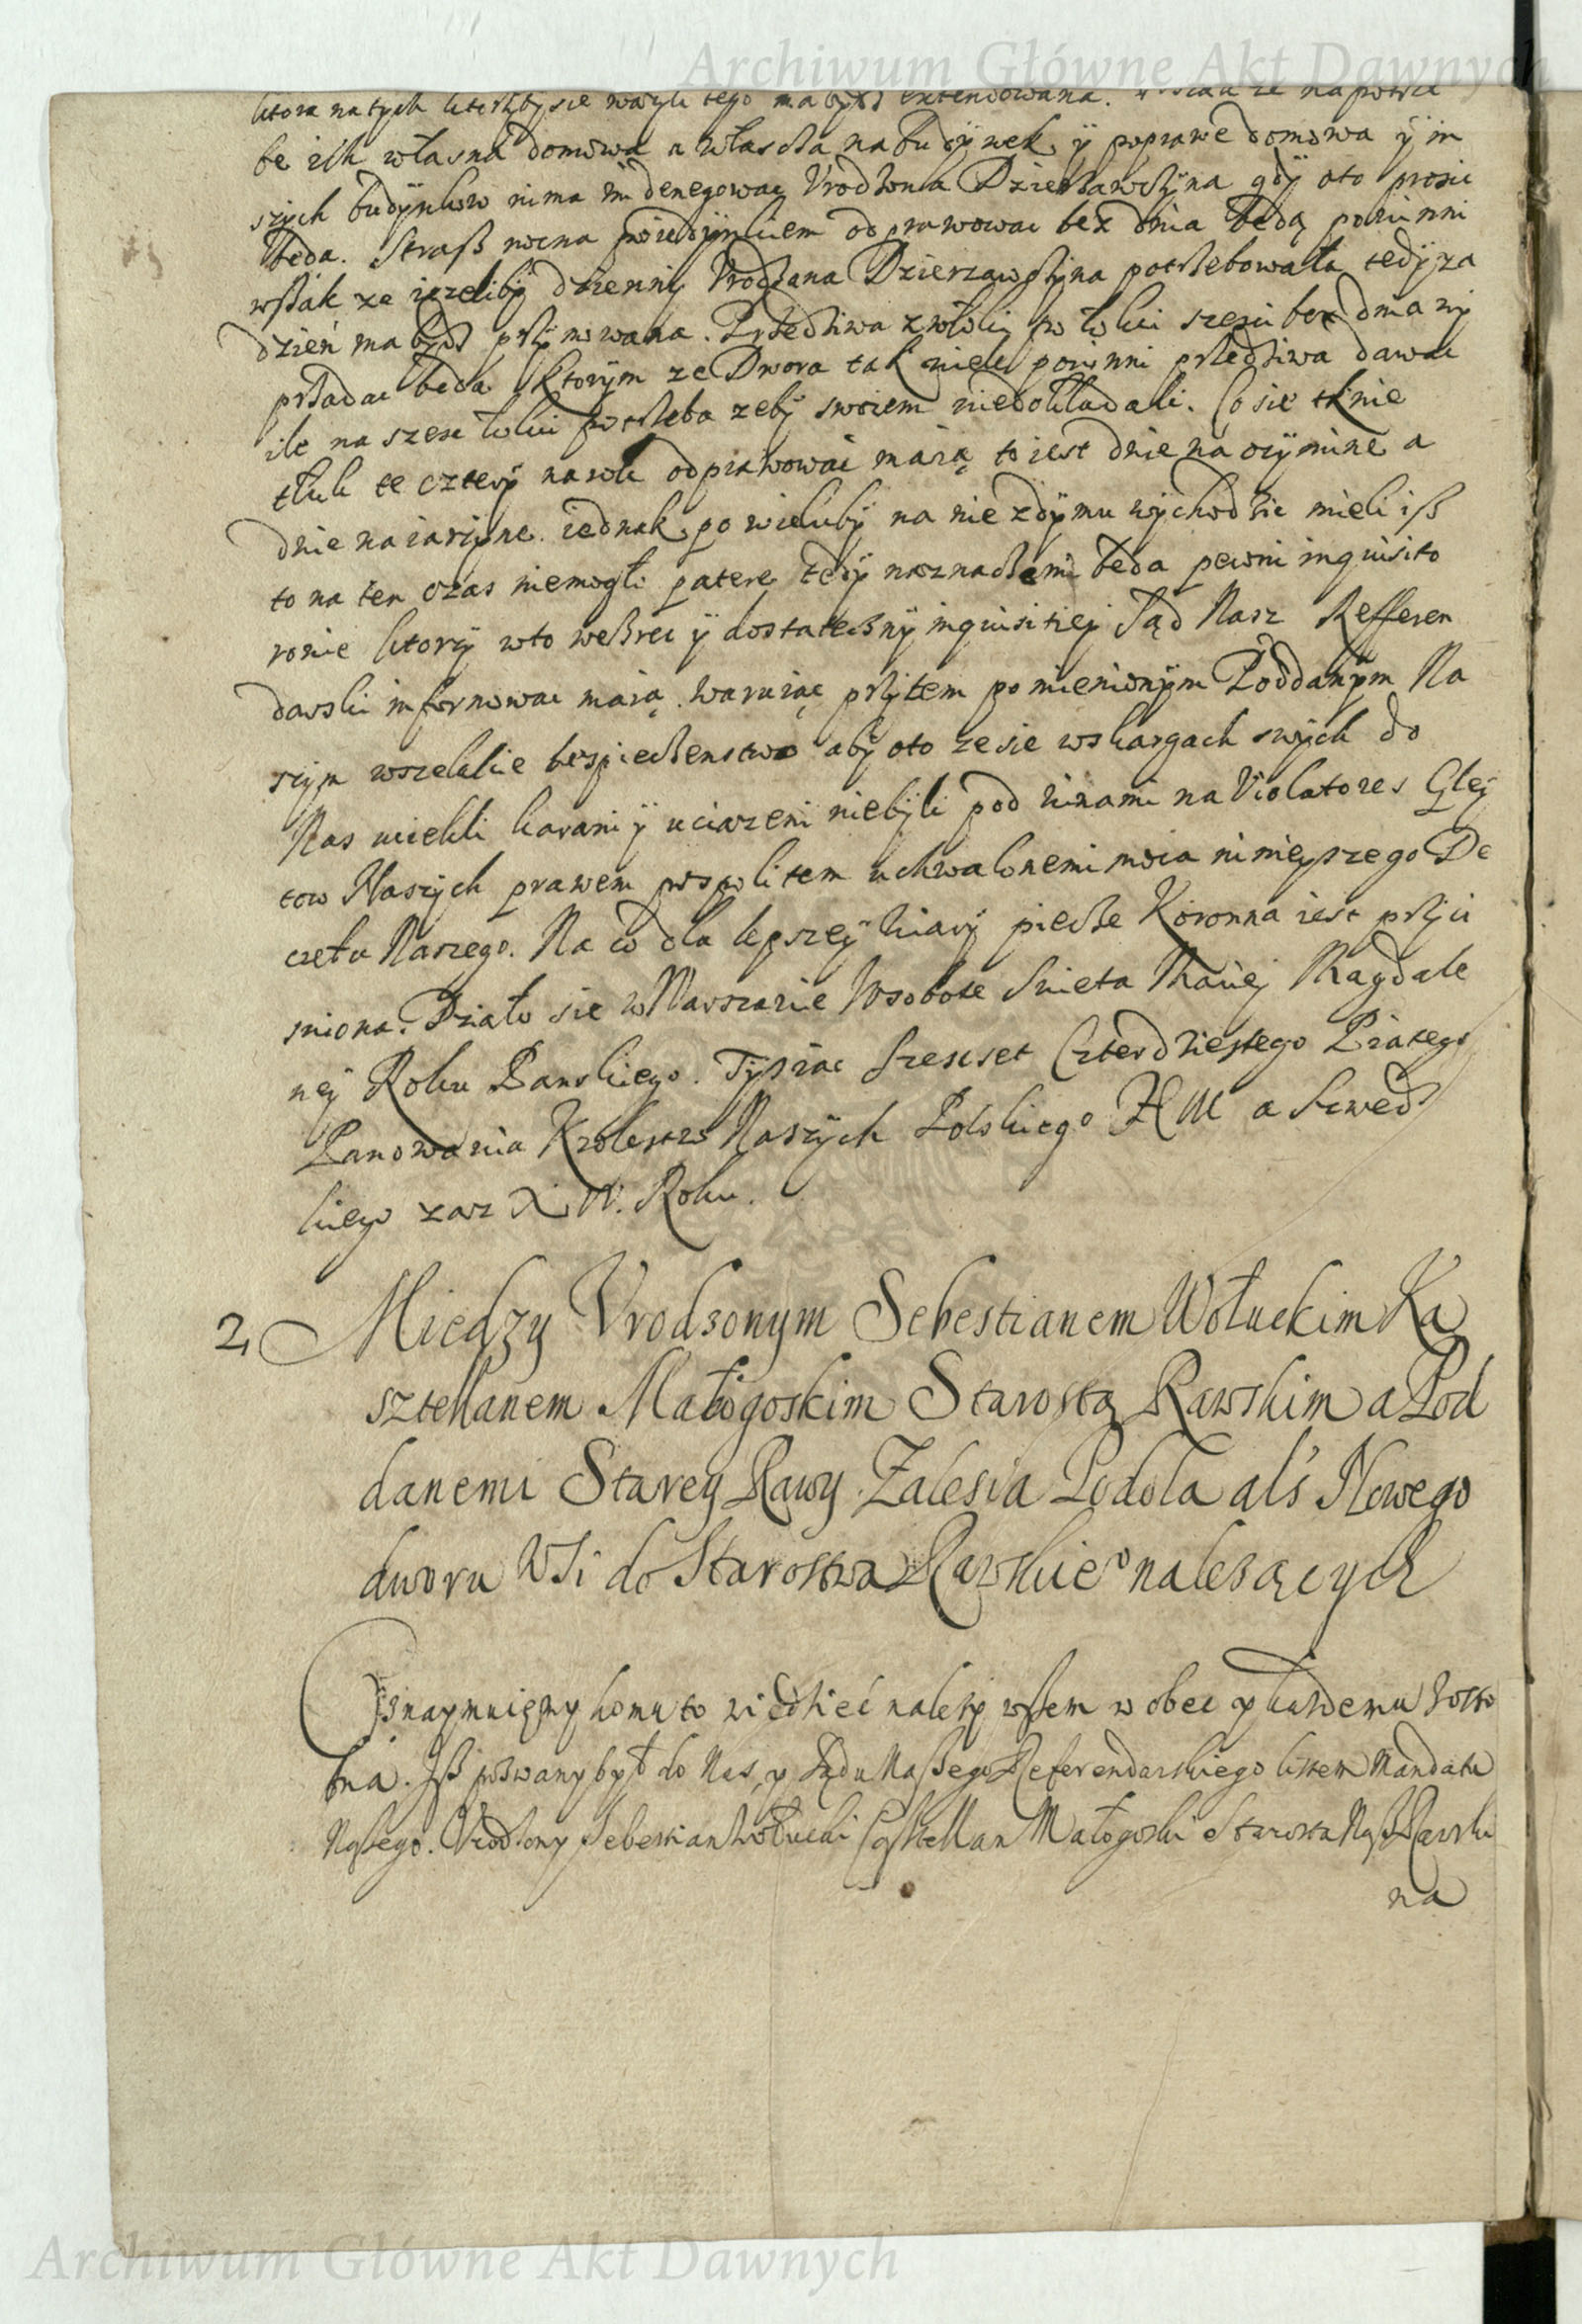 Archiwum Główne Akt Dawnych
ktora na tych ktorzyby sie wazyli tego ma bydz extendowana. na potrze
be ich własna domowa a włascza na budynek y poprawe domowa y in
szych budynkow nima im denegowac Vrodzona Dzierzawczyna gdy oto prosic
beda. Straß nocna poiedynkiem odprawowac bez dnia będą powinni
wszak ze iezeliby dzienny Vrodzona Dzierzawczyna potrzebowała tedy za
dzień ma bydz przymowana. Przedziwa z włoki po łokci szesci bez dma wy
przadac beda. ktorym ze Dwora tak wiele powinni przedziwa dawac
ile na szesc łokci potrzeba zeby swoiem niedokładali. Co sie tknie
tłuk te cztery na rok odprawowac maią to iest dwie na ozymine a
dwie na iarzyne. iednak po wieluby na nie z dymu wychodzic mieli iß
to na ten czas niemogło patere, tedy naznaczeni beda pewni inquisito
rowie ktory wto weßrec y dostateczny inquisitiej Sąd Nasz Refferen
darski informowac maią. waruiąc przytem pomienionym Poddanym Na
szym wszelkie bespieczenstwo aby oto ze sie w skargach swych do
Nas uciekli karani y uciazeni niebyli pod winami na Violatores Gley
tow Naszych prawem pospolitem uchwalonemi moca ninieyszego De
cretu Naszego. Na co dla lepszey wiary pieczec Koronna iest przyci
sniona. Działo sie w Warszawie W sobote Swieta Mariej Magdale
nej Roku Panskiego. Tysiac Szescset Czterdziestego Piatego
Panowania Krolestw Naszych Polskiego XIII a Szweds
kiego zas XIV. Roku.
2, Miedzy Vrodzonym Sebestianem Wołuckim Ka
sztellanem Małogoskim Starostą Rawskim a Pod
danemi Starey Rawy Zalesia Podola als Nowego
dworu Wsi do Starostwa Rawskieo nalezących
Oznaymuiemy komu to wiedzieć nalezy wszem w obec y kazdemu zoso
bna. Iß pozwany był do Nas, y Sądu Naszego Referendarskiego listem Mandatu
Naszego. Vrodzony Sebestian Wołucki Casztellan Małogoski Starosta Nasz Rawski
na
Archiwum Główne Akt Dawnych